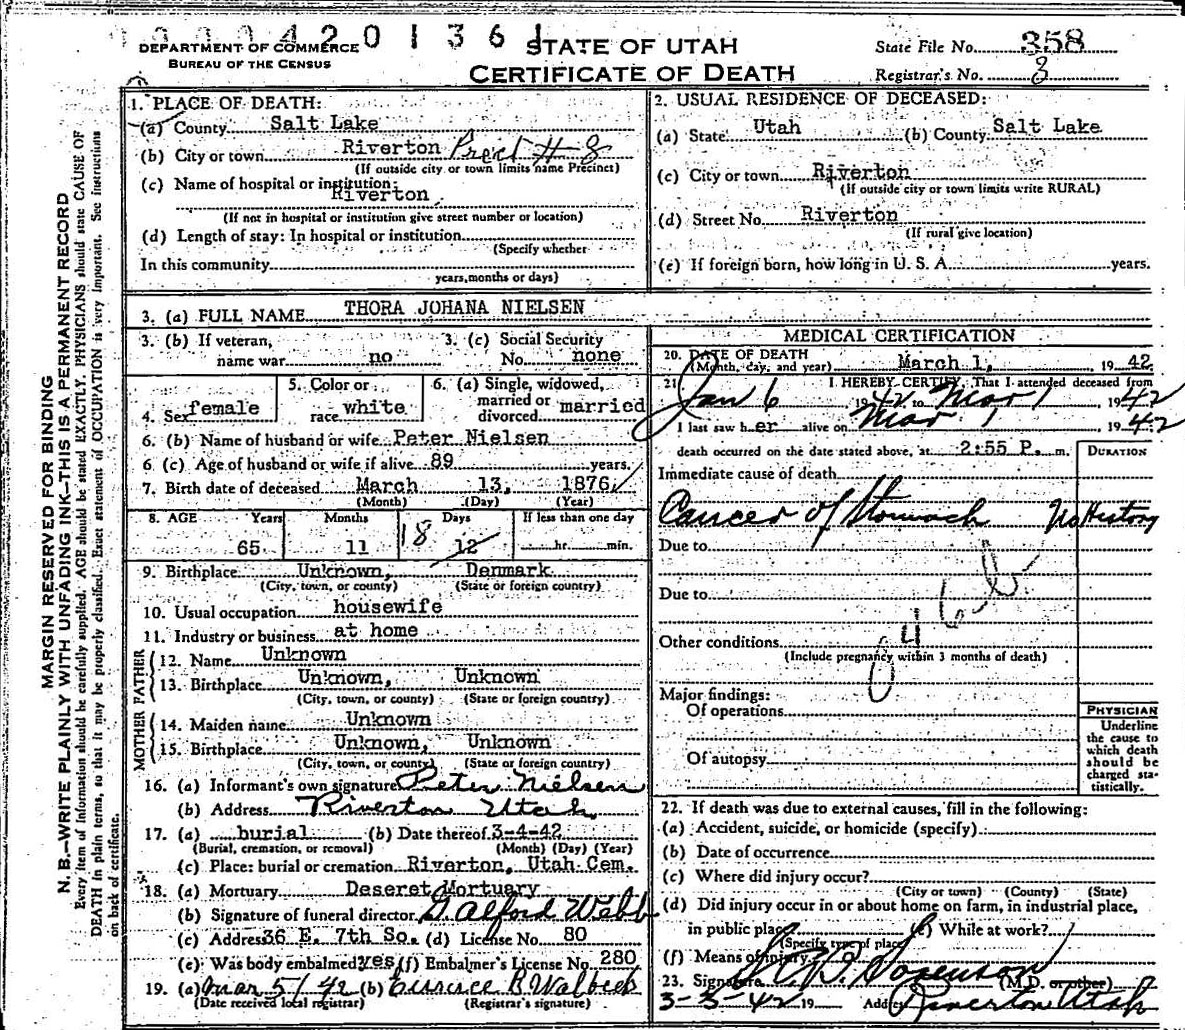 420 1361
DEPARTMENT OF COMMERCE
BUREAU OF THE CENSUS
STATE OF UTAH
CERTIFICATE OF DEATH
State File No. 358
Registrar's No. 3
MARGIN RESERVED FOR BINDING
N. B.—WRITE PLAINLY WITH UNFADING INK—THIS IS A PERMANENT RECORD
Every item of Information should be carefully supplied. AGE should be stated EXACTLY. PHYSICIANS should state CAUSE OF
DEATH in plain terms, so that it may be properly classified. Exact statement of OCCUPATION is very important. See instructions
on back of certificate.
1. PLACE OF DEATH:
(a) County Salt Lake
(b) City or town Riverton Prect # 8
(If outside city or town limits name Precinct)
(c) Name of hospital or institution:
Riverton
(If not in hospital or institution give street number or location)
(d) Length of stay: In hospital or institution
(Specify whether
In this community
years, months or days)
2. USUAL RESIDENCE OF DECEASED:
(a) State Utah (b) County Salt Lake
(c) City or town Riverton
(If outside city or town limits write RURAL)
(d) Street No. Riverton
(If rural give location)
(e) If foreign born, how long in U. S. A. years.
3. (a) FULL NAME THORA JOHANA NIELSEN
3. (b) If veteran,
name war no
3. (c) Social Security
No. none
4. Sex female
5. Color or
race white
6. (a) Single, widowed,
married or
divorced married
6. (b) Name of husband or wife Peter Nielsen
6. (c) Age of husband or wife if alive 89 years.
7. Birth date of deceased March 13, 1876
(Month) (Day) (Year)
8. AGE Years Months Days If less than one day
65 11 18 12 hr. min.
9. Birthplace Unknown, Denmark
(City, town, or county) (State or foreign country)
10. Usual occupation housewife
11. Industry or business at home
FATHER
12. Name Unknown
13. Birthplace Unknown, Unknown
(City, town, or county) (State or foreign country)
MOTHER
14. Maiden name Unknown
15. Birthplace Unknown, Unknown
(City, town, or county) (State or foreign country)
16. (a) Informant's own signature Peter Nielsen
(b) Address Riverton Utah
17. (a) burial (b) Date thereof 3-4-42
(Burial, cremation, or removal) (Month) (Day) (Year)
(c) Place: burial or cremation Riverton, Utah Cem.
18. (a) Mortuary Deseret Mortuary
(b) Signature of funeral director D. Alford Webb
(c) Address 36 E. 7th So. (d) License No. 80
(e) Was body embalmed? yes (f) Embalmer's License No. 280
19. (a) Mar 5/42 (b)
(Date received local registrar) (Registrar's signature)
MEDICAL CERTIFICATION
20. DATE OF DEATH
(Month, day, and year) March 1, 1942
21. I HEREBY CERTIFY, That I attended deceased from
Jan 6 1942 to Mar 1 1942
I last saw her alive on Mar 1 1942
death occurred on the date stated above, at 2:55 P. m.
DURATION
Immediate cause of death
Cancer of Stomach No History
Due to
Due to
Other conditions
(Include pregnancy within 3 months of death)
Major findings:
Of operations
Of autopsy
PHYSICIAN
Underline
the cause to
which death
should be
charged sta-
tistically.
22. If death was due to external causes, fill in the following:
(a) Accident, suicide, or homicide (specify)
(b) Date of occurrence
(c) Where did injury occur?
(City or town) (County) (State)
(d) Did injury occur in or about home on farm, in industrial place,
in public place? (e) While at work?
(Specify type of place)
(f) Means of injury
23. Signature Sorenson (M.D. or other)
3-3-42 19 Address Riverton Utah